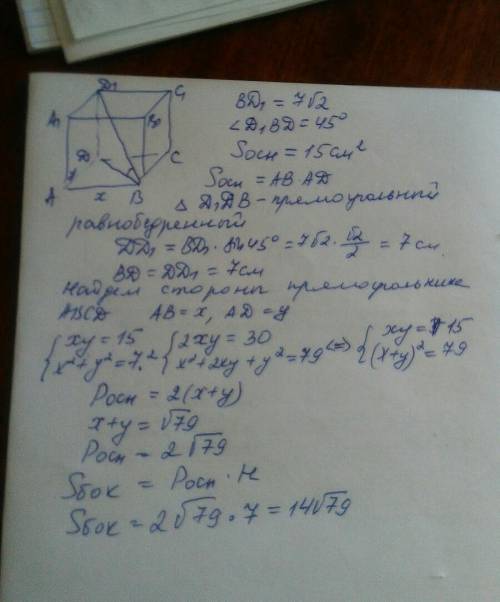 D₁ C₁
A₁ B₁
D C
A x B
y
BD₁ = 7√2
∠D₁BD = 45°
Sосн = 15 см²
Sосн = AB · AD
△ D₁DB – прямоугольный
равнобедренный
DD₁ = BD₁ · sin 45° = 7√2 · √2/2 = 7 см.
BD = DD₁ = 7 см
Найдем стороны прямоугольника
ABCD AB = x, AD = y
{xy = 15 {2xy = 30 {xy = 15
{x² + y² = 7² {x² + 2xy + y² = 79 <=> {(x+y)² = 79
Pосн = 2(x+y)
x+y = √79
Pосн = 2√79
Sбок = Pосн · H
Sбок = 2√79 · 7 = 14√79